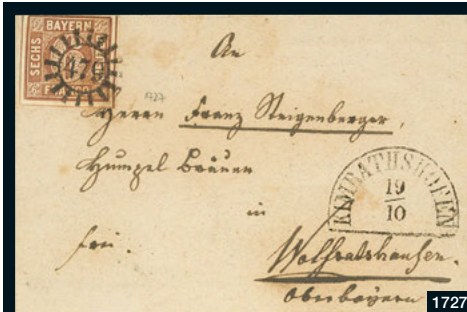 BAYERN
SECHS
470
An
1727
Herrn Franz Steigenberger,
in
KIMRATHSHOFEN
19
10
frei.
Wolfratshausen.
Oberbayern
1727